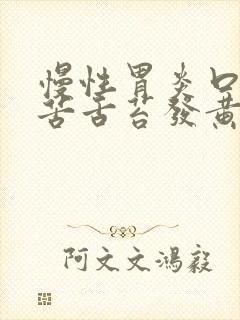 慢性胃炎口
苦舌苔發黃
阿文文鴻毅